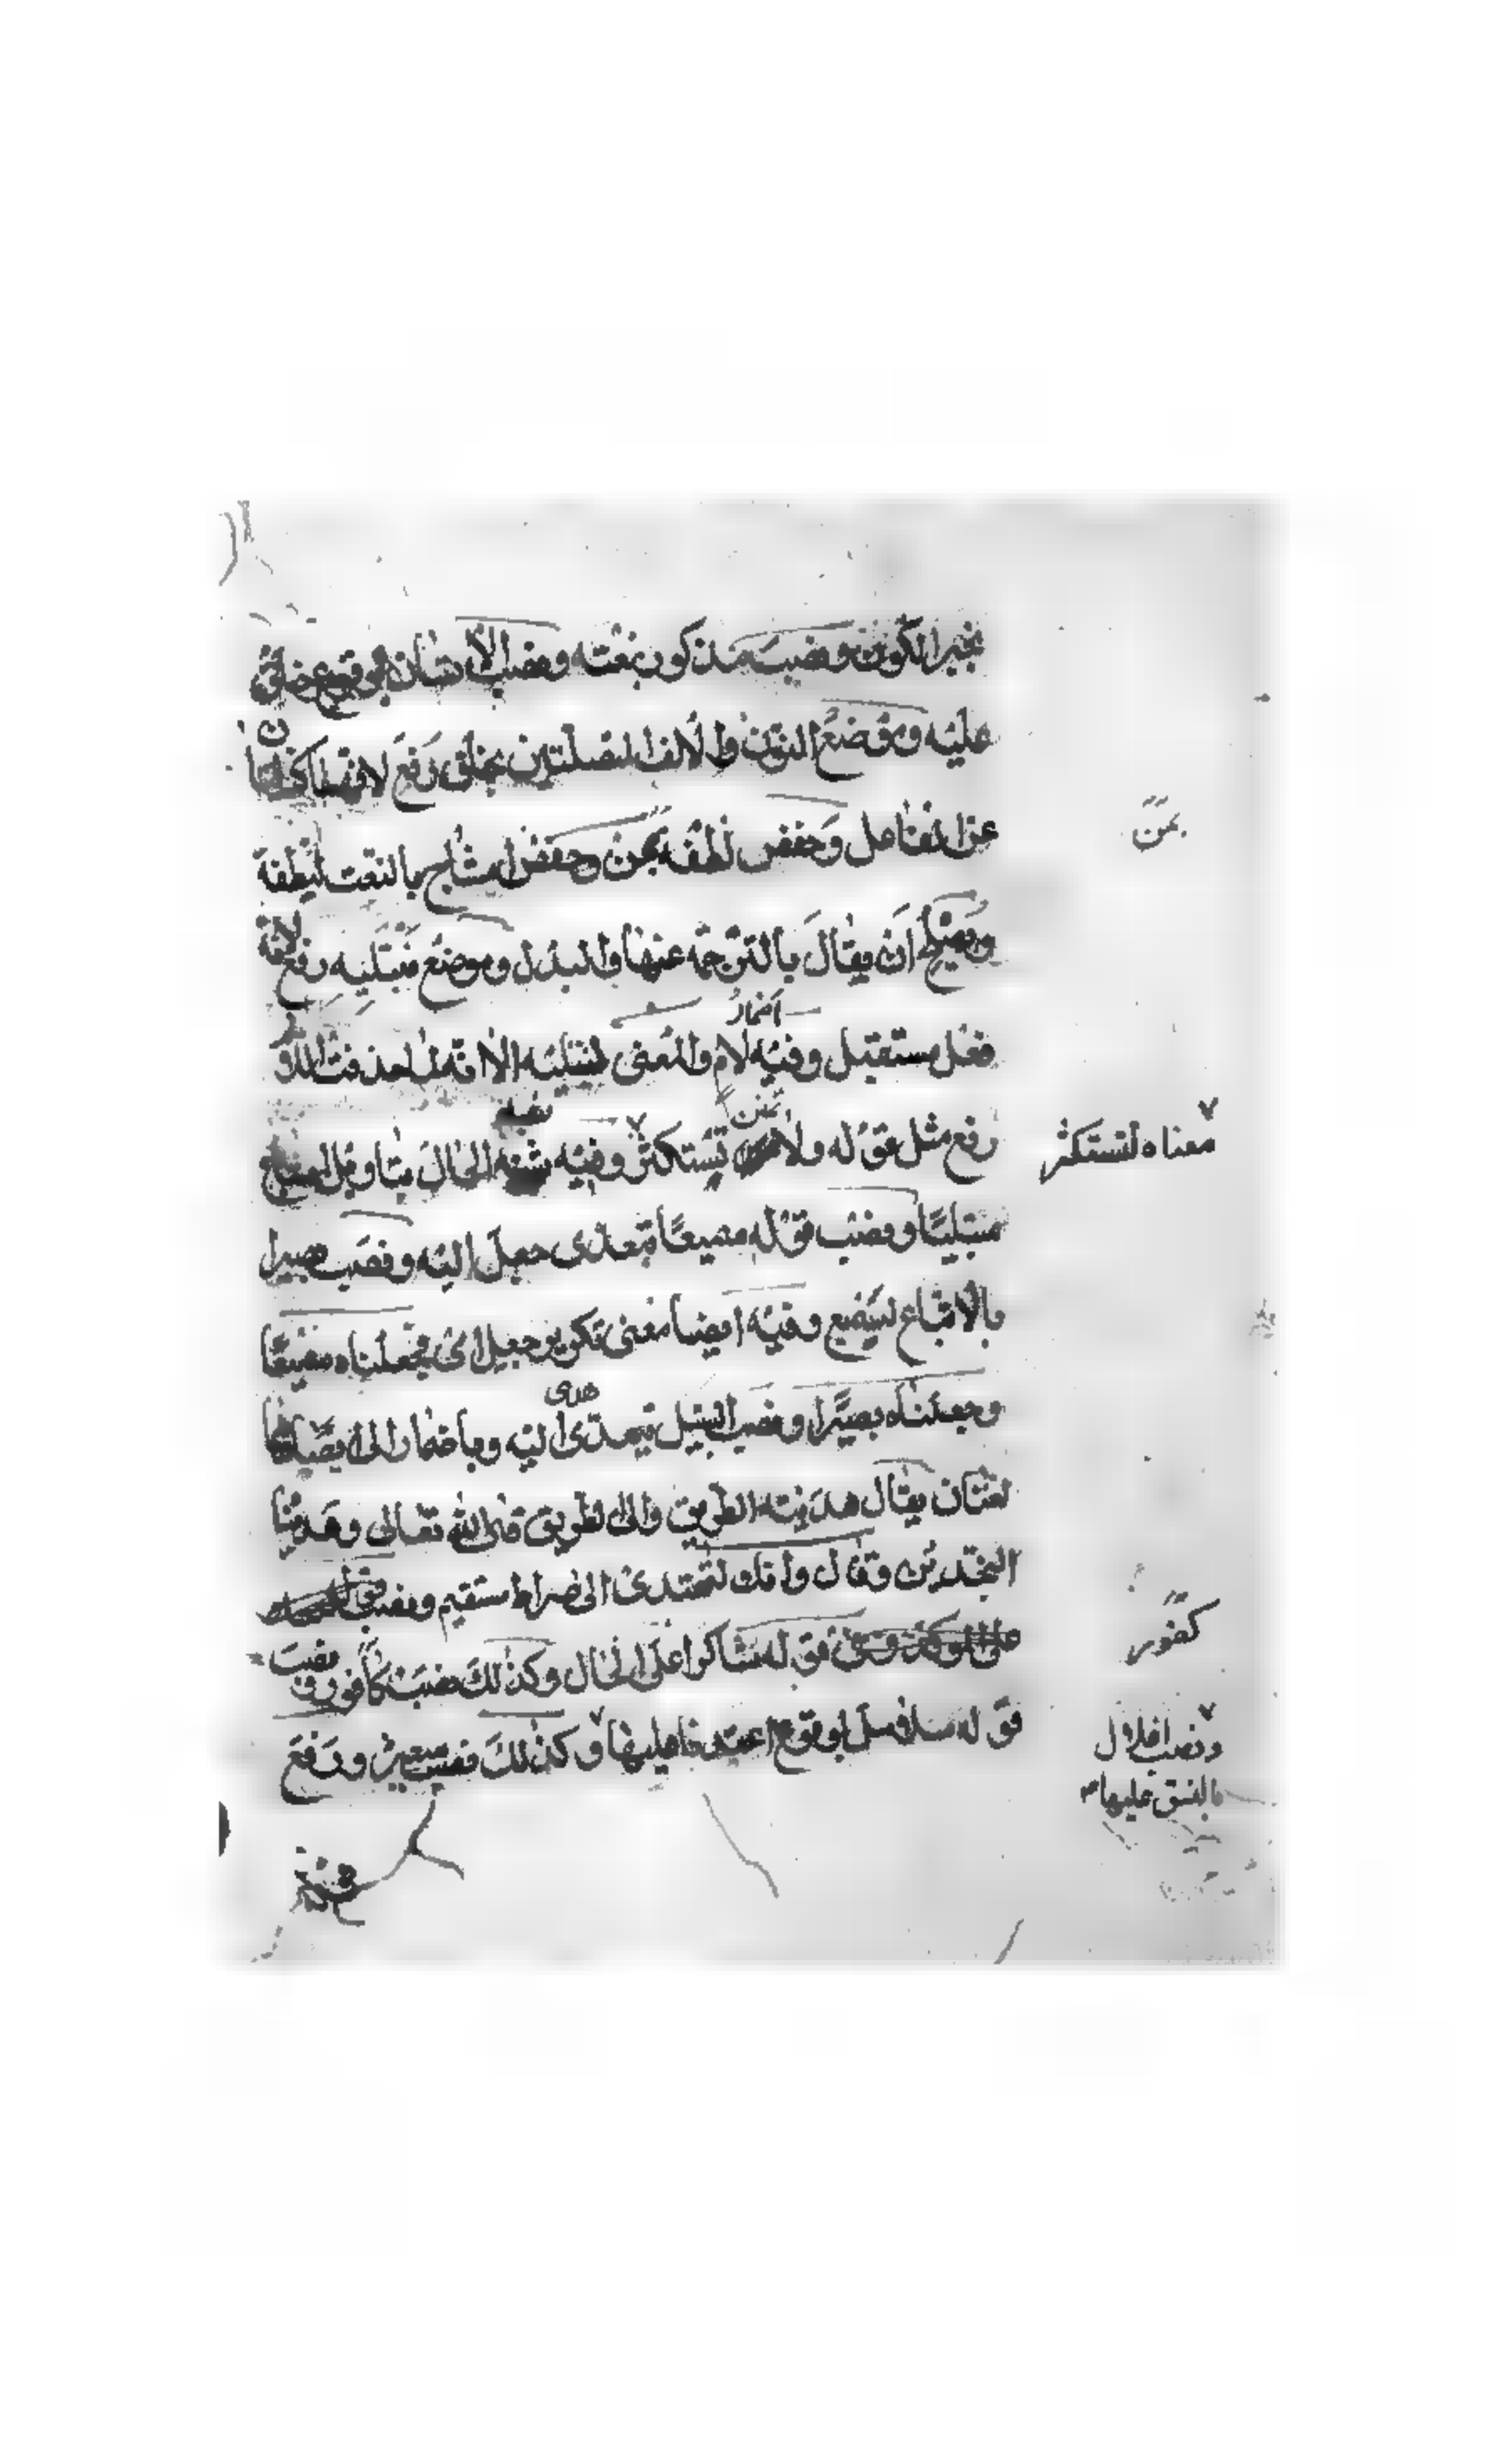 بخبر الكون ونصب مذكور بنعته ونصب الانسان بوقوع خلق
عليه وموضع النون والالف المتصلتين بخلق رفع لانهما كنايتان
عن الفاعل وخفض نطفة بمن وخفض امشاج بالنعت لنطفة
ويصلح ان يقال بالترجمة عنها والبدل وموضع نبتليه رفع لانه
فعل مستقبل وفيه اضمار لام والمعنى لنبتليه الا انه لما حذفت اللام
رفع مثل قوله ولا تمنن تستكثر وفيه شبه الحال بتاويل
مبتليا ونصب قوله سميعا بتعدى جعل اليه ونصب بصيرا
بالاتباع لسميع وفيه ايضا معنى تكرير جعل اى فجعلناه سميعا
وجعلناه بصيرا ونصب السبيل بتعدى هدى اليه وباضمار الى ايضا
لغتان يقال هديته الطريق والى الطريق قال الله تعالى وهديناه
النجدين وقال وانك لتهتدى الى صراط مستقيم ونصب قوله
قوله شاكرا على الحال وكذلك نصب كفورا ونصب
قوله سلاسل بوقوع اعتدنا عليها وكذلك نصب سعيرا ورفع
بمن
معناه لتستكثر
كفور
ونصب اغلال
بالنسق عليها